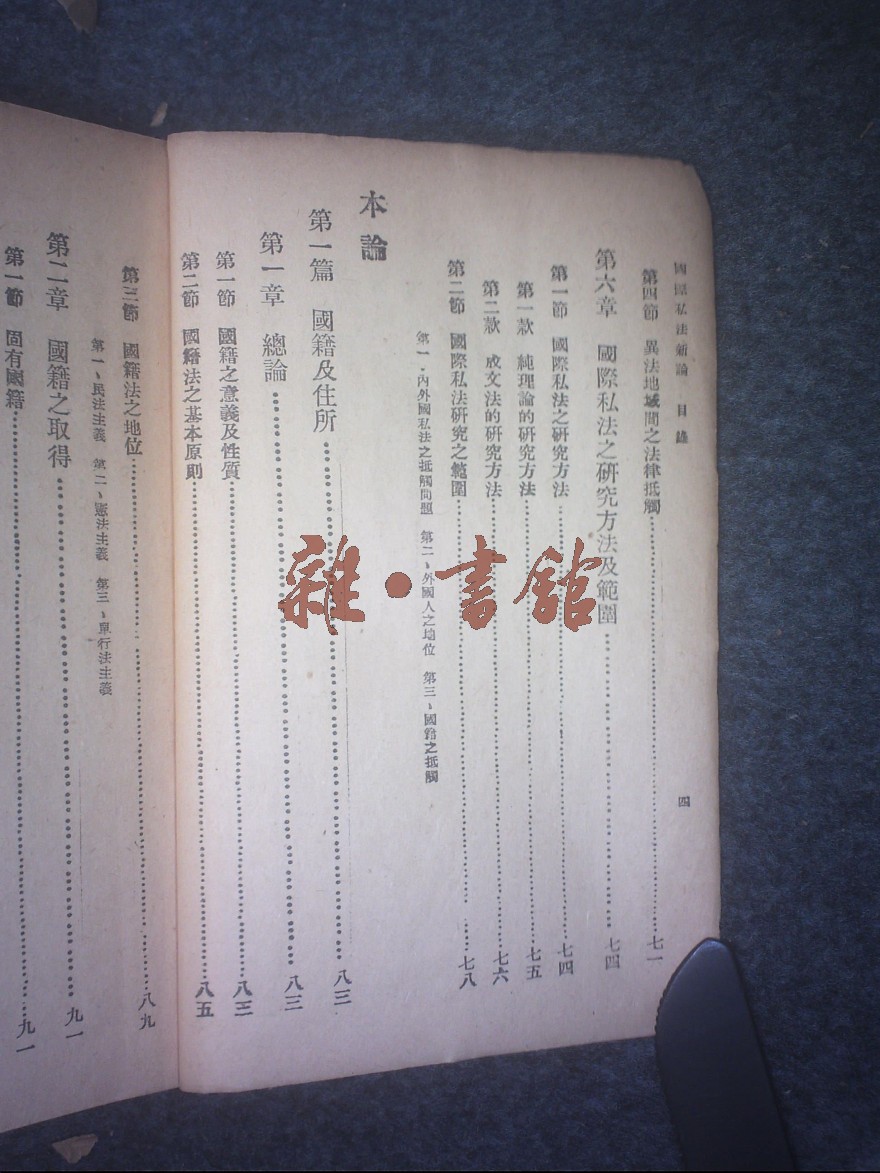 國際私法新論 目錄 四
第四節 異法地域間之法律抵觸……七一
第六章 國際私法之研究方法及範圍……七四
第一節 國際私法之研究方法……七四
第一款 純理論的研究方法……七五
第二款 成文法的研究方法……七六
第二節 國際私法研究之範圍……七八
第一、內外國私法之抵觸問題 第二、外國人之地位 第三、國籍之抵觸
本論
第一篇 國籍及住所……八三
第一章 總論……八三
第一節 國籍之意義及性質……八三
第二節 國籍法之基本原則……八五
第三節 國籍法之地位……八九
第一、民法主義 第二、憲法主義 第三、單行法主義
第二章 國籍之取得……九一
第一節 固有國籍……九一
雜·書館